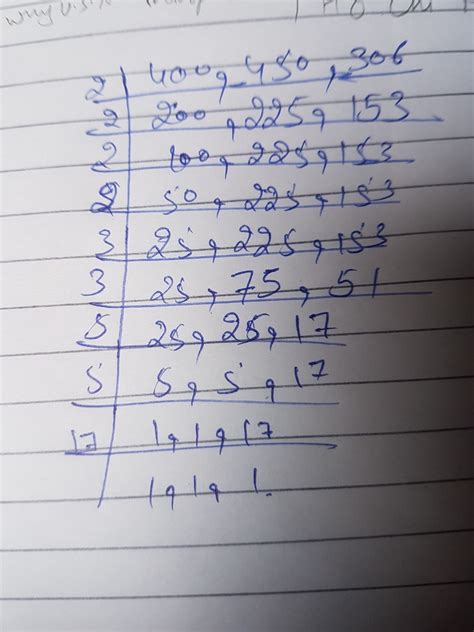 why
2 | 400, 450, 306
2 | 200, 225, 153
2 | 100, 225, 153
2 | 50, 225, 153
3 | 25, 225, 153
3 | 25, 75, 51
5 | 25, 25, 17
5 | 5, 5, 17
17 | 1, 1, 17
1, 1, 1